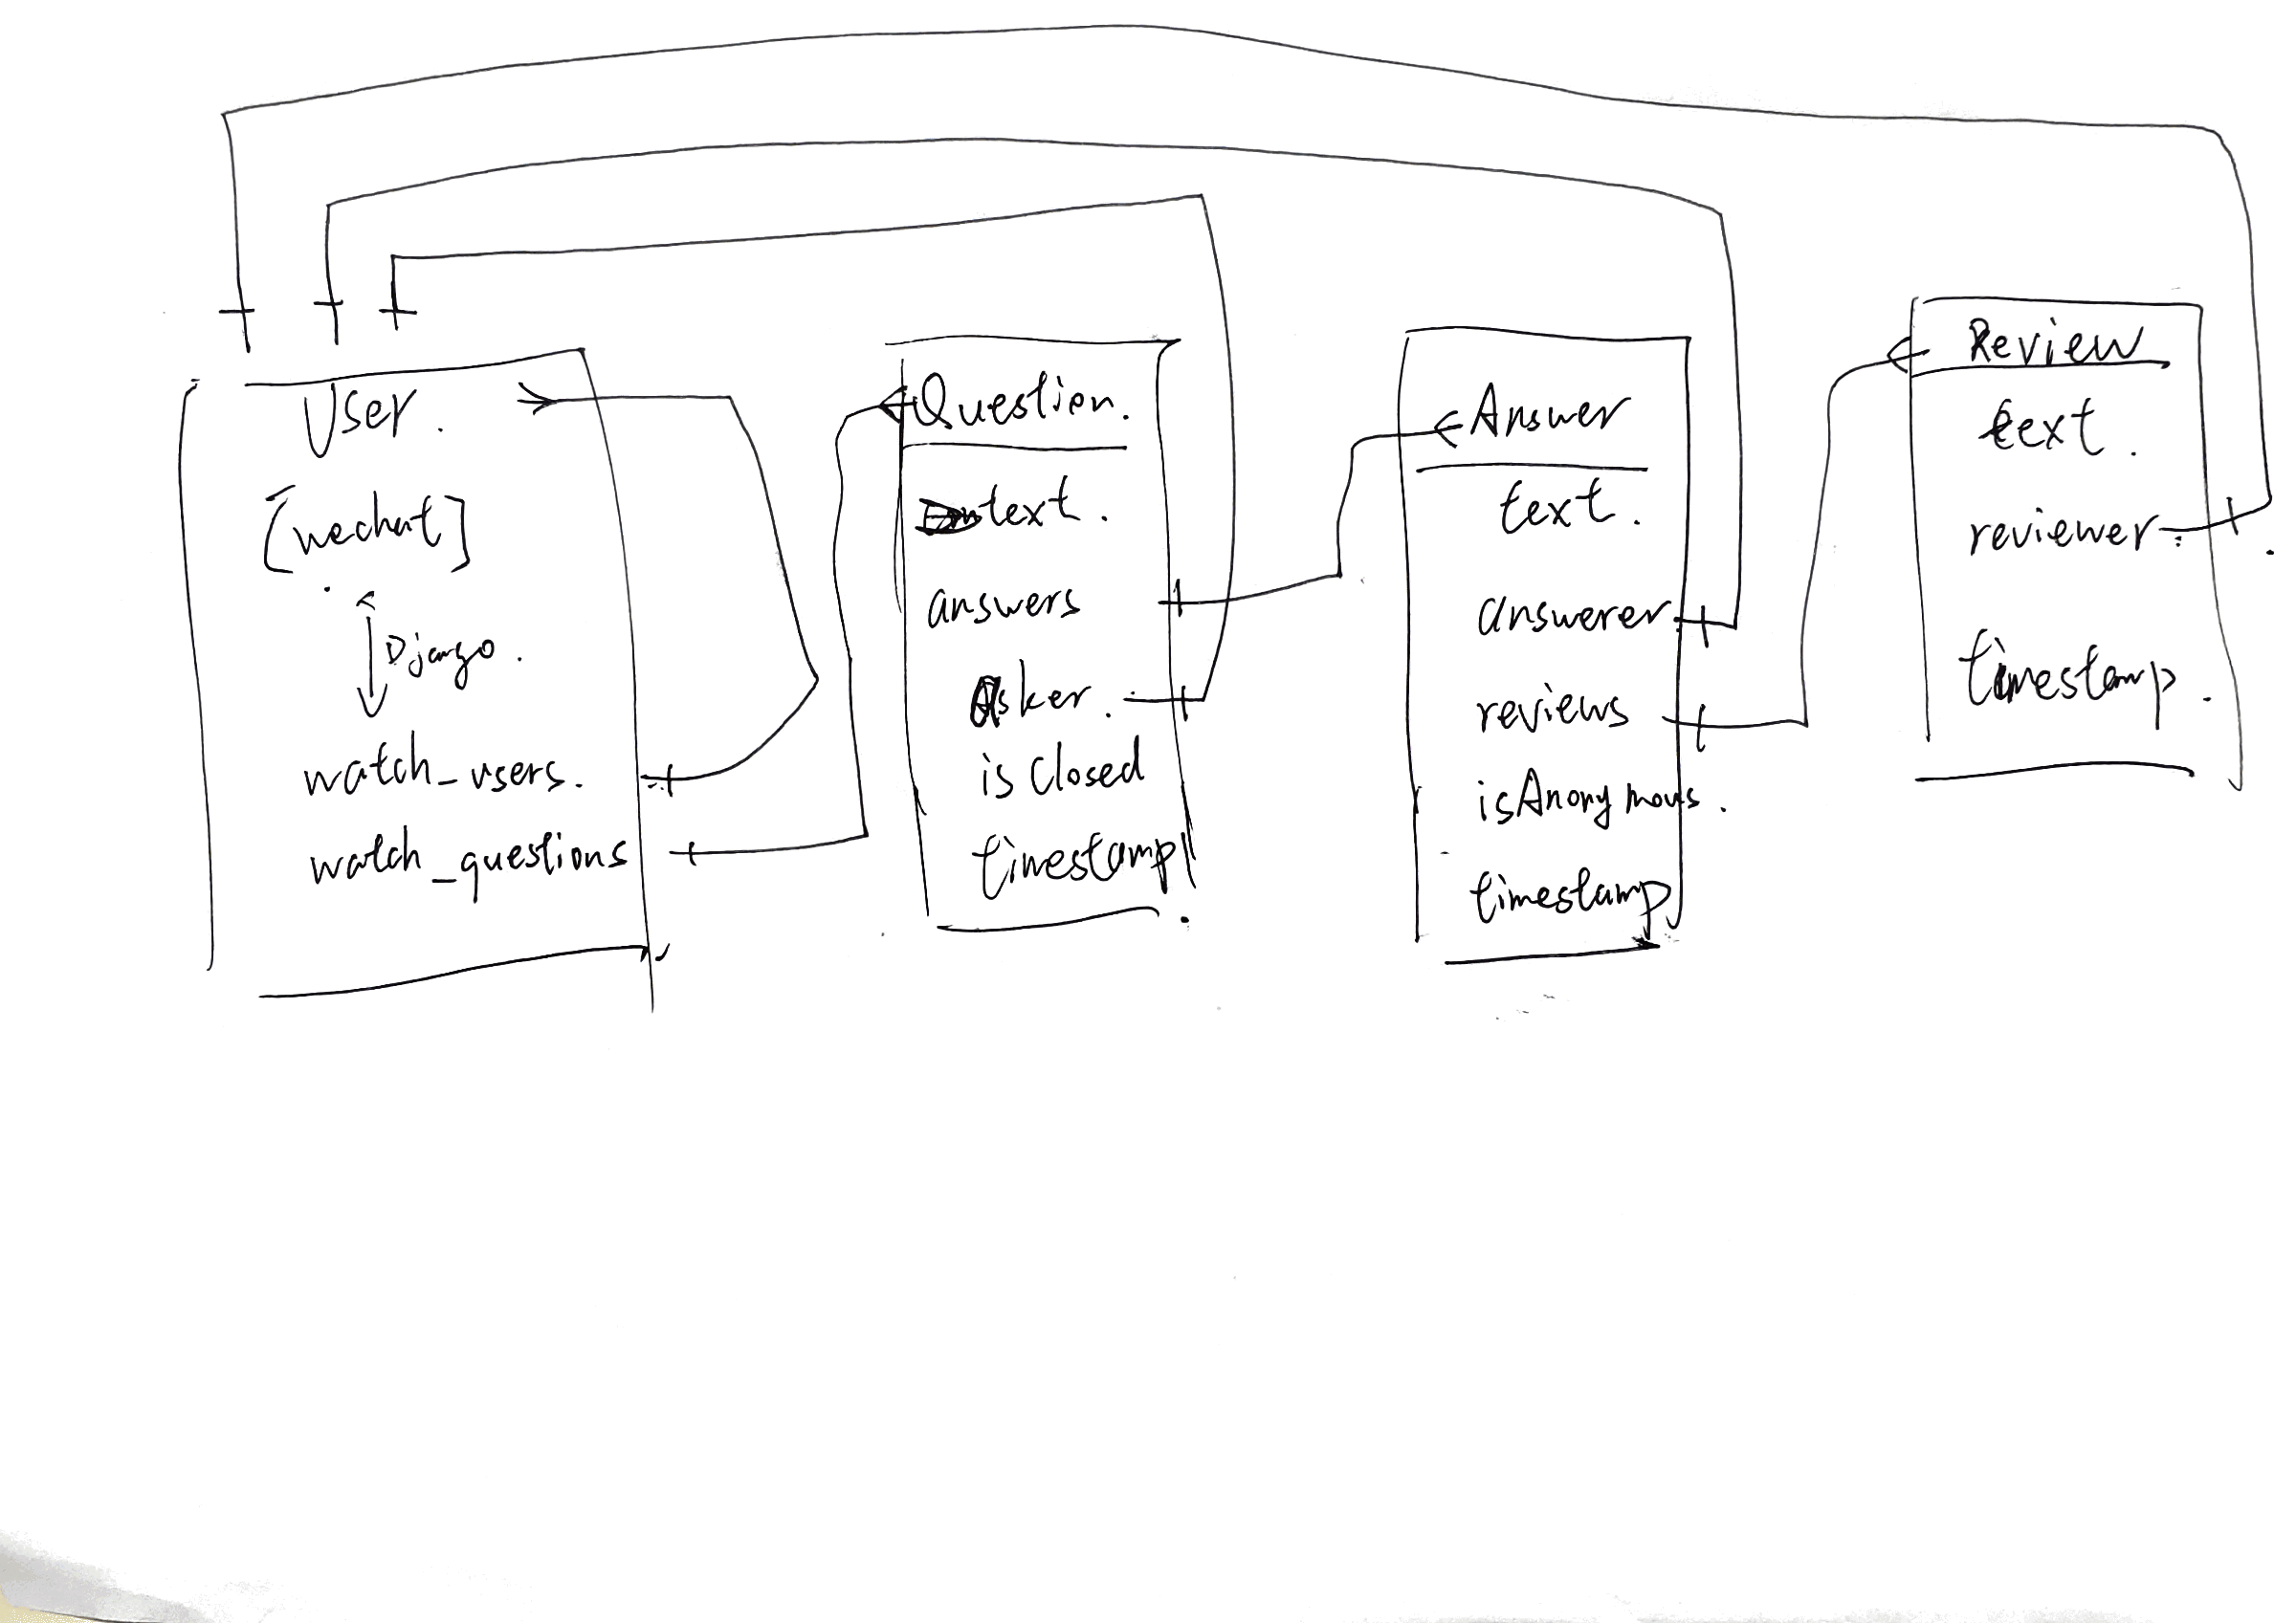 User.
[wechat]
Django.
watch_users.
watch_questions
Question.
text.
answers
Asker.
isClosed
timestamp
Answer
text.
answerer
reviews
isAnonymous.
timestamp
Review
text.
reviewer
timestamp.